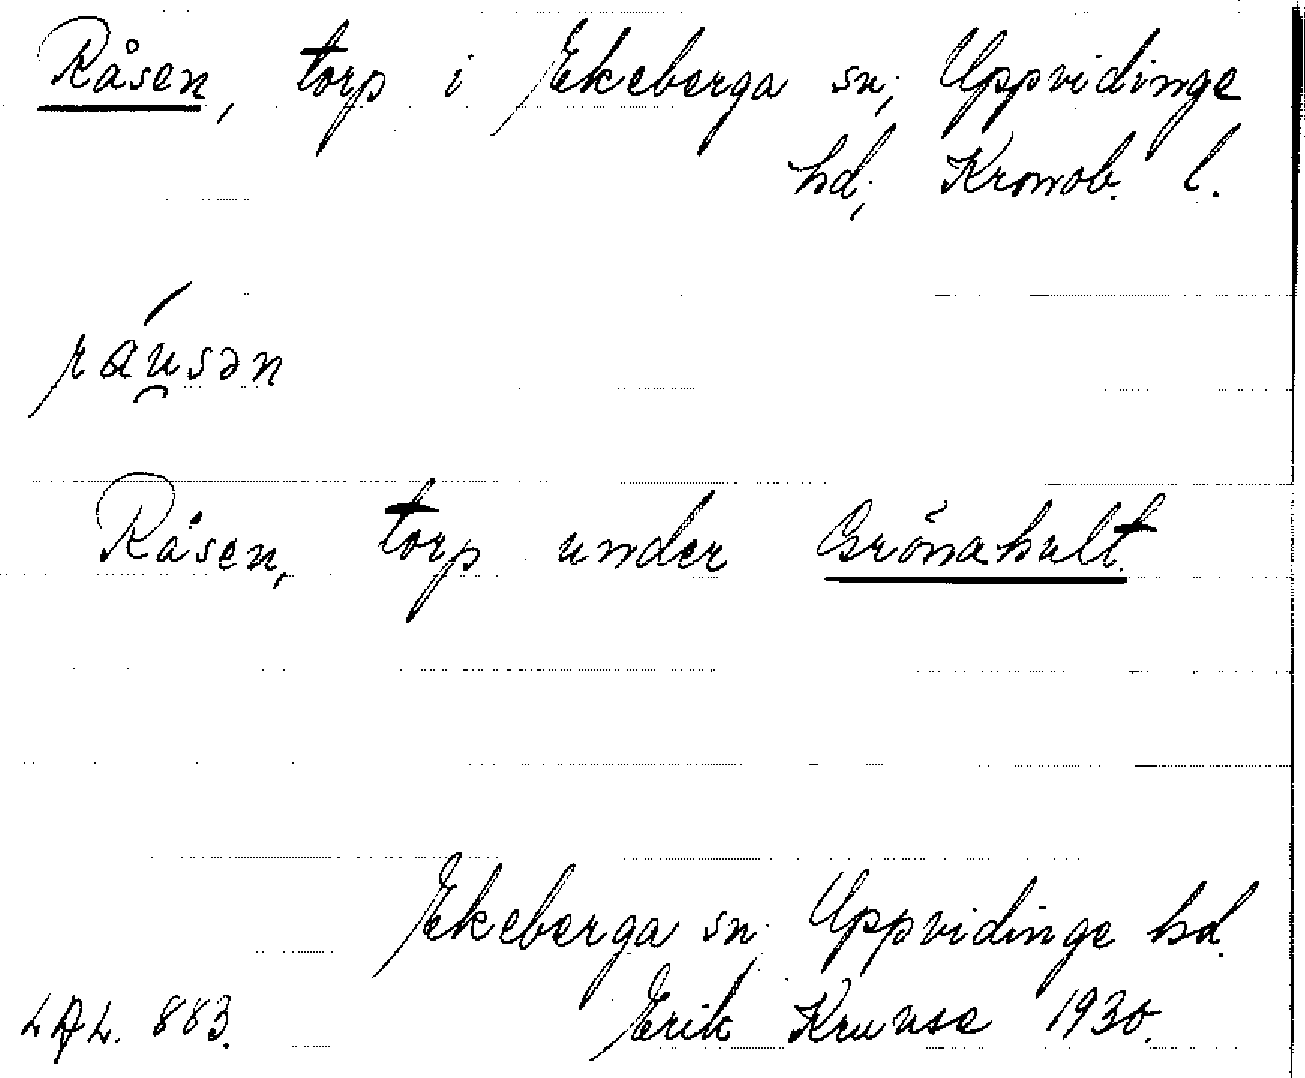 Råsen, torp i Ekeberga sn, Uppvidinge
hd, Kronob. l.
ráu̯sən
Råsen, torp under Grönahult.
Ekeberga sn, Uppvidinge hd.
L.A.L. 883. Erik Kruuse 1930.